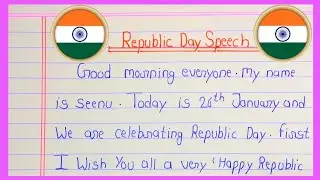 Republic Day Speech
Good morning everyone. my name
is seenu. Today is 26th January and
We are celebrating Republic Day. first
I Wish You all a very 'Happy Republic